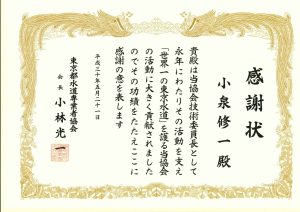 感謝状
小泉修一殿
貴殿は当協会技術委員長として
永年にわたりその活動を支え
「世界一の東京水道」を護る当協会
の活動に大きく貢献されました
のでその功績をたたえここに
感謝の意を表します
平成三十年五月二十一日
東京都水道専業者協会
会長 小林光